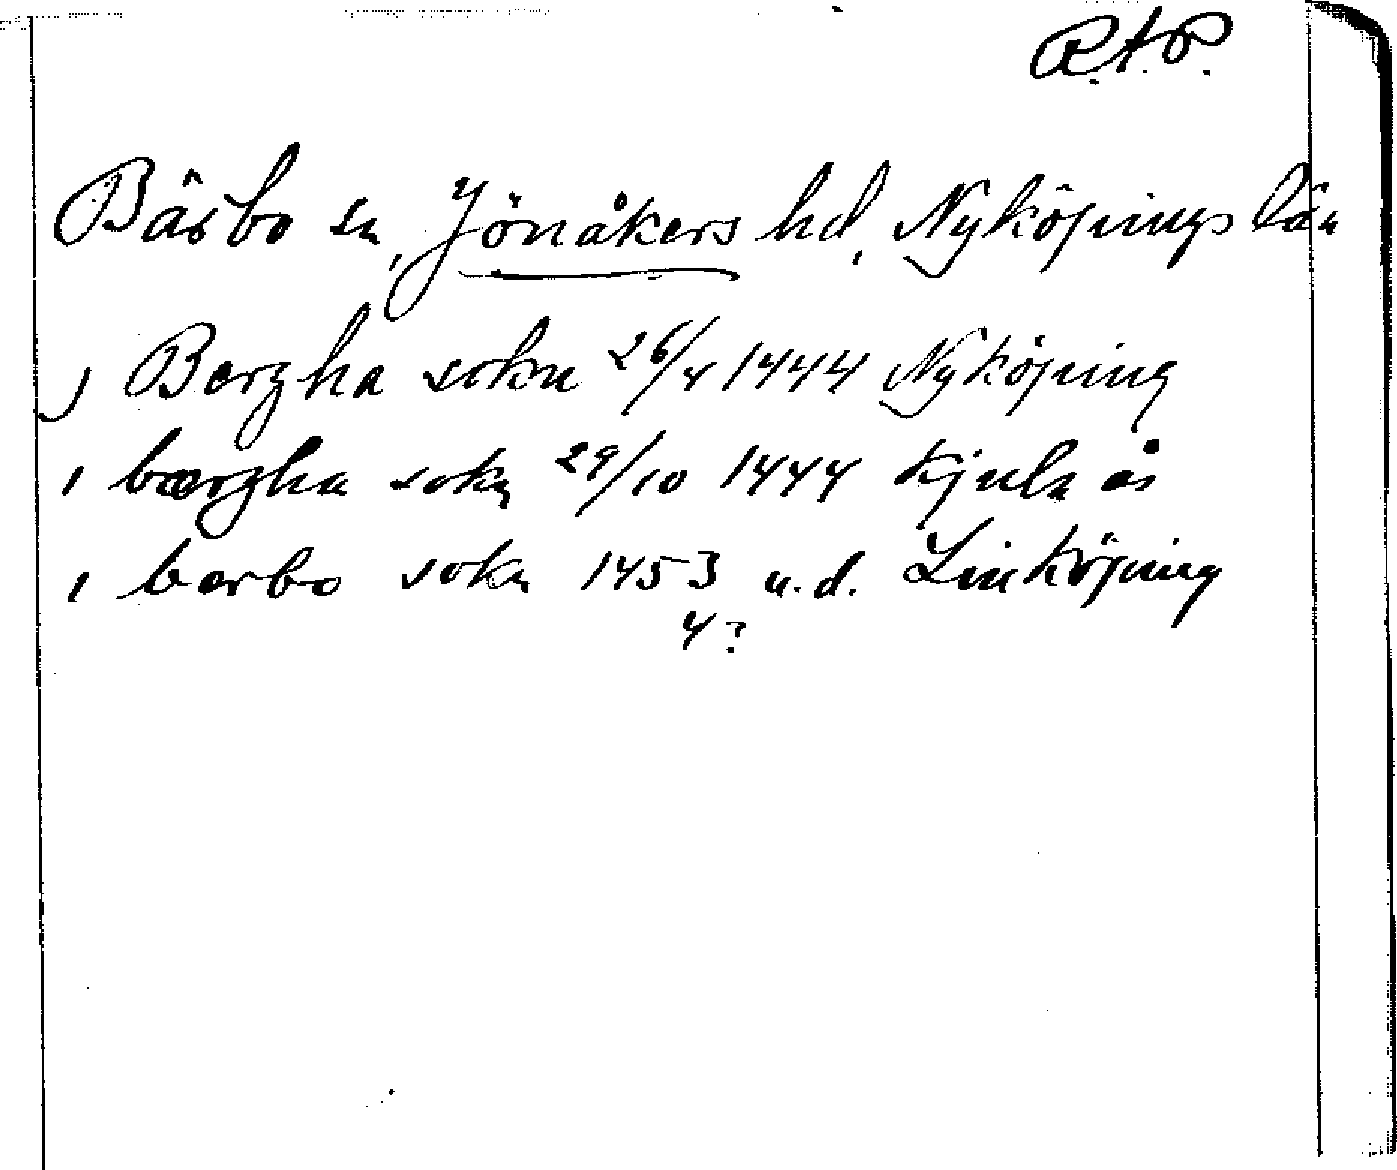 R.A.P.
Bärbo sn, Jönåkers hd, Nyköpings län
j Bergha sokn 26/4 1444 Nyköping
i bærgha sokn 29/10 1444 Kjula ås
i berbo sokn 1453 u.d. Linköping
4?